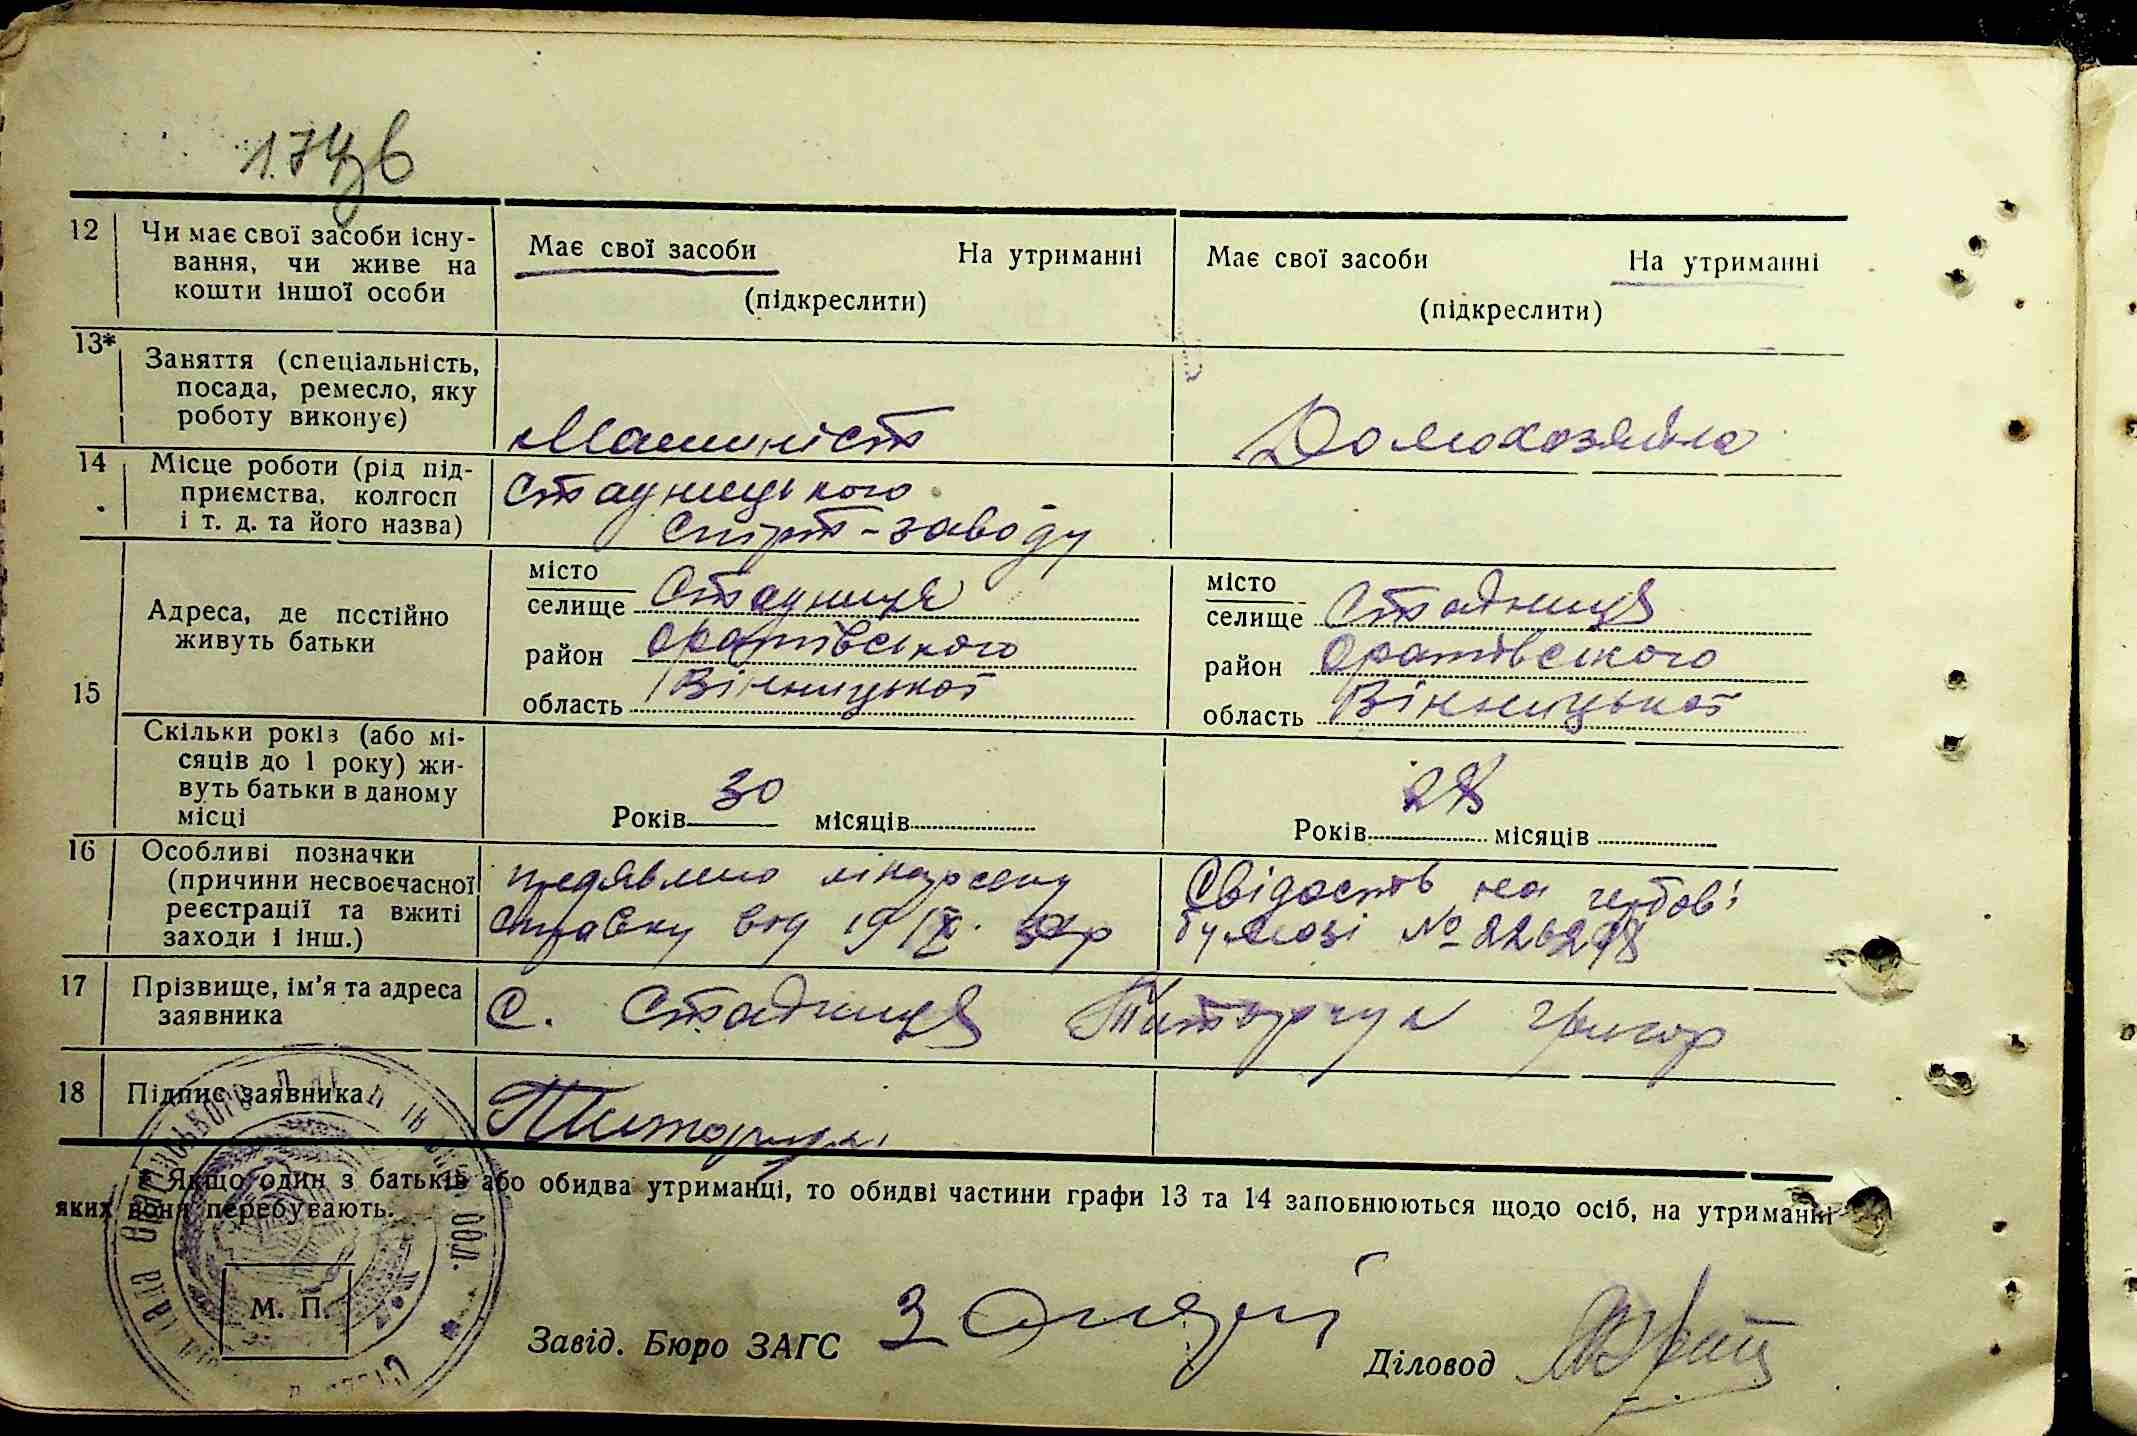 174зв
12 Чи має свої засоби існу-
вання, чи живе на
кошти іншої особи
Має свої засоби На утриманні
(підкреслити)
Має свої засоби На утриманні
(підкреслити)
13* Заняття (спеціальність,
посада, ремесло, яку
роботу виконує)
Машиніст
Домохозяйка
14 Місце роботи (рід під-
приємства, колгосп
і т. д. та його назва)
Стадницького
Спирт-заводу
15
Адреса, де постійно
живуть батьки
місто
селище Стадниця
район Оратівського
область Вінницької
місто
селище Стадниця
район Оратівського
область Вінницької
Скільки років (або мі-
сяців до 1 року) жи-
вуть батьки в даному
місці
Років 30 місяців
Років місяців
16 Особливі позначки
(причини несвоєчасної
реєстрації та вжиті
заходи і інш.)
справку від 19/IX
Свідоцтв на гербові
бумозі №
17 Прізвище, ім'я та адреса
заявника
С. Стадниця Титарчук Григор
18 Підпис заявника
* Якщо один з батьків або обидва утриманці, то обидві частини графи 13 та 14 заповнюються щодо осіб, на утриманні
яких вони перебувають.
М. П.
Завід. Бюро ЗАГС
Діловод